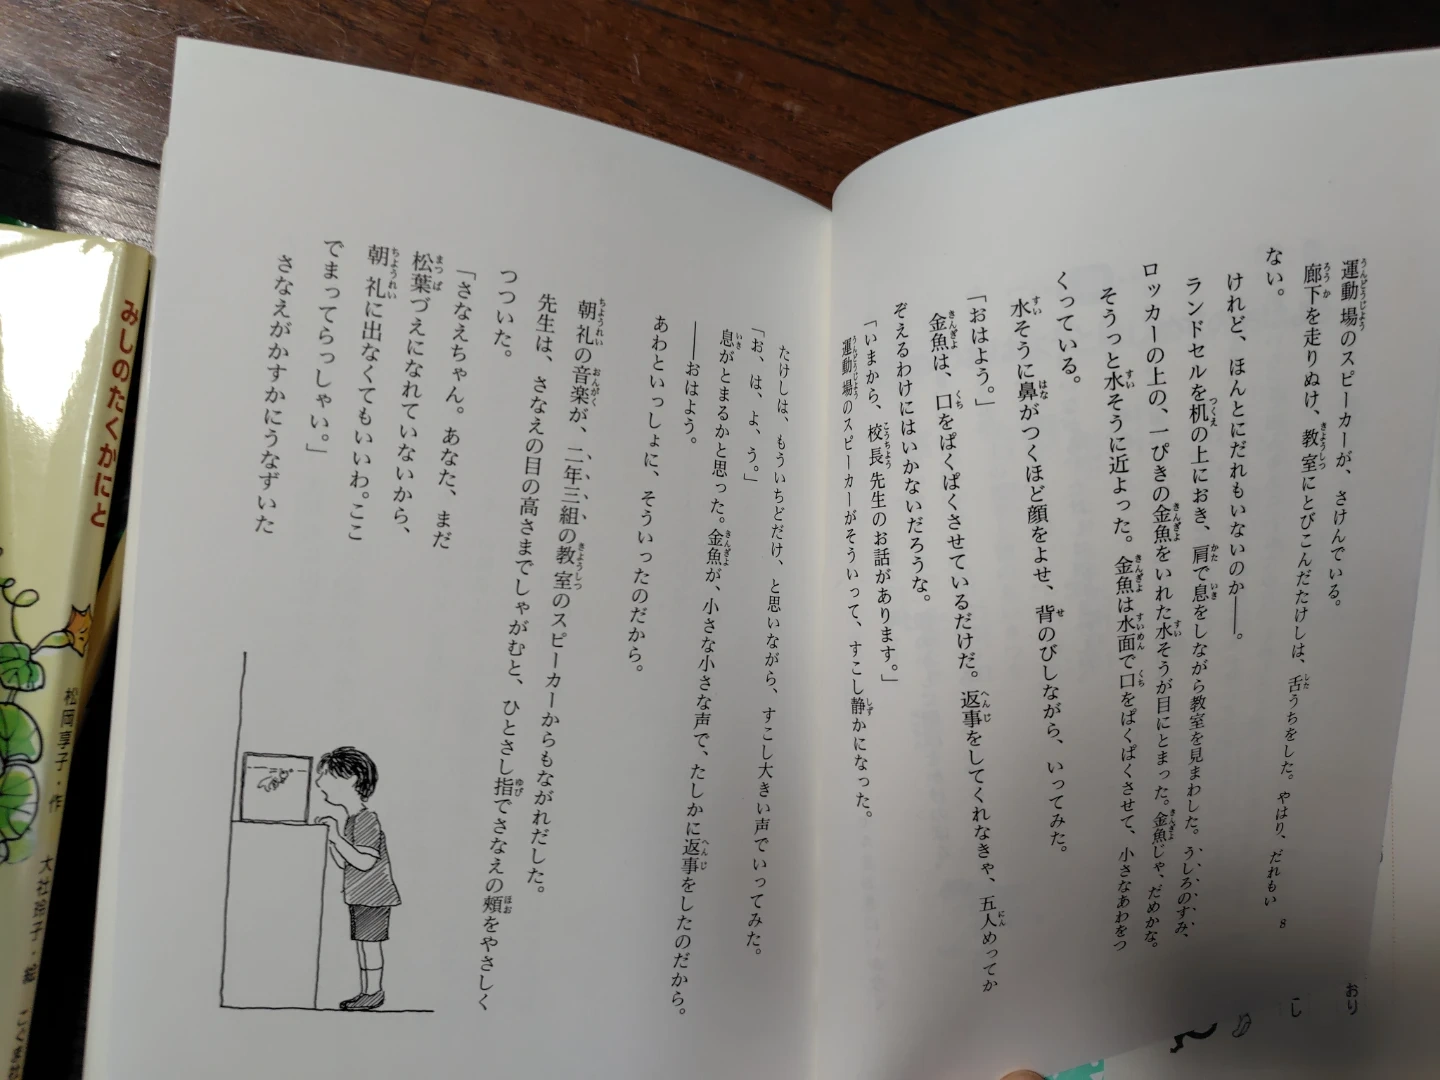 運動場のスピーカーが、さけんでいる。
廊下を走りぬけ、教室にとびこんだたけしは、舌うちをした。やはり、だれもい
ない。
けれど、ほんとにだれもいないのか――。
ランドセルを机の上におき、肩で息をしながら教室を見まわした。うしろのすみ、
ロッカーの上の、一ぴきの金魚をいれた水そうが目にとまった。金魚じゃ、だめかな。
そうっと水そうに近よった。金魚は水面で口をぱくぱくさせて、小さなあわをつ
くっている。
水そうに鼻がつくほど顔をよせ、背のびしながら、いってみた。
「おはよう。」
金魚は、口をぱくぱくさせているだけだ。返事をしてくれなきゃ、五人めってか
ぞえるわけにはいかないだろうな。
「いまから、校長先生のお話があります。」
運動場のスピーカーがそういって、すこし静かになった。
8
たけしは、もういちどだけ、と思いながら、すこし大きい声でいってみた。
「お、は、よ、う。」
息がとまるかと思った。金魚が、小さな小さな声で、たしかに返事をしたのだから。
――おはよう。
あわといっしょに、そういったのだから。
朝礼の音楽が、二年三組の教室のスピーカーからもながれだした。
先生は、さなえの目の高さまでしゃがむと、ひとさし指でさなえの頰をやさしく
つついた。
「さなえちゃん。あなた、まだ
松葉づえになれていないから、
朝礼に出なくてもいいわ。ここ
でまってらっしゃい。」
さなえがかすかにうなずいた
おり
みしのたくかにと
松岡享子・作
大社玲子・絵